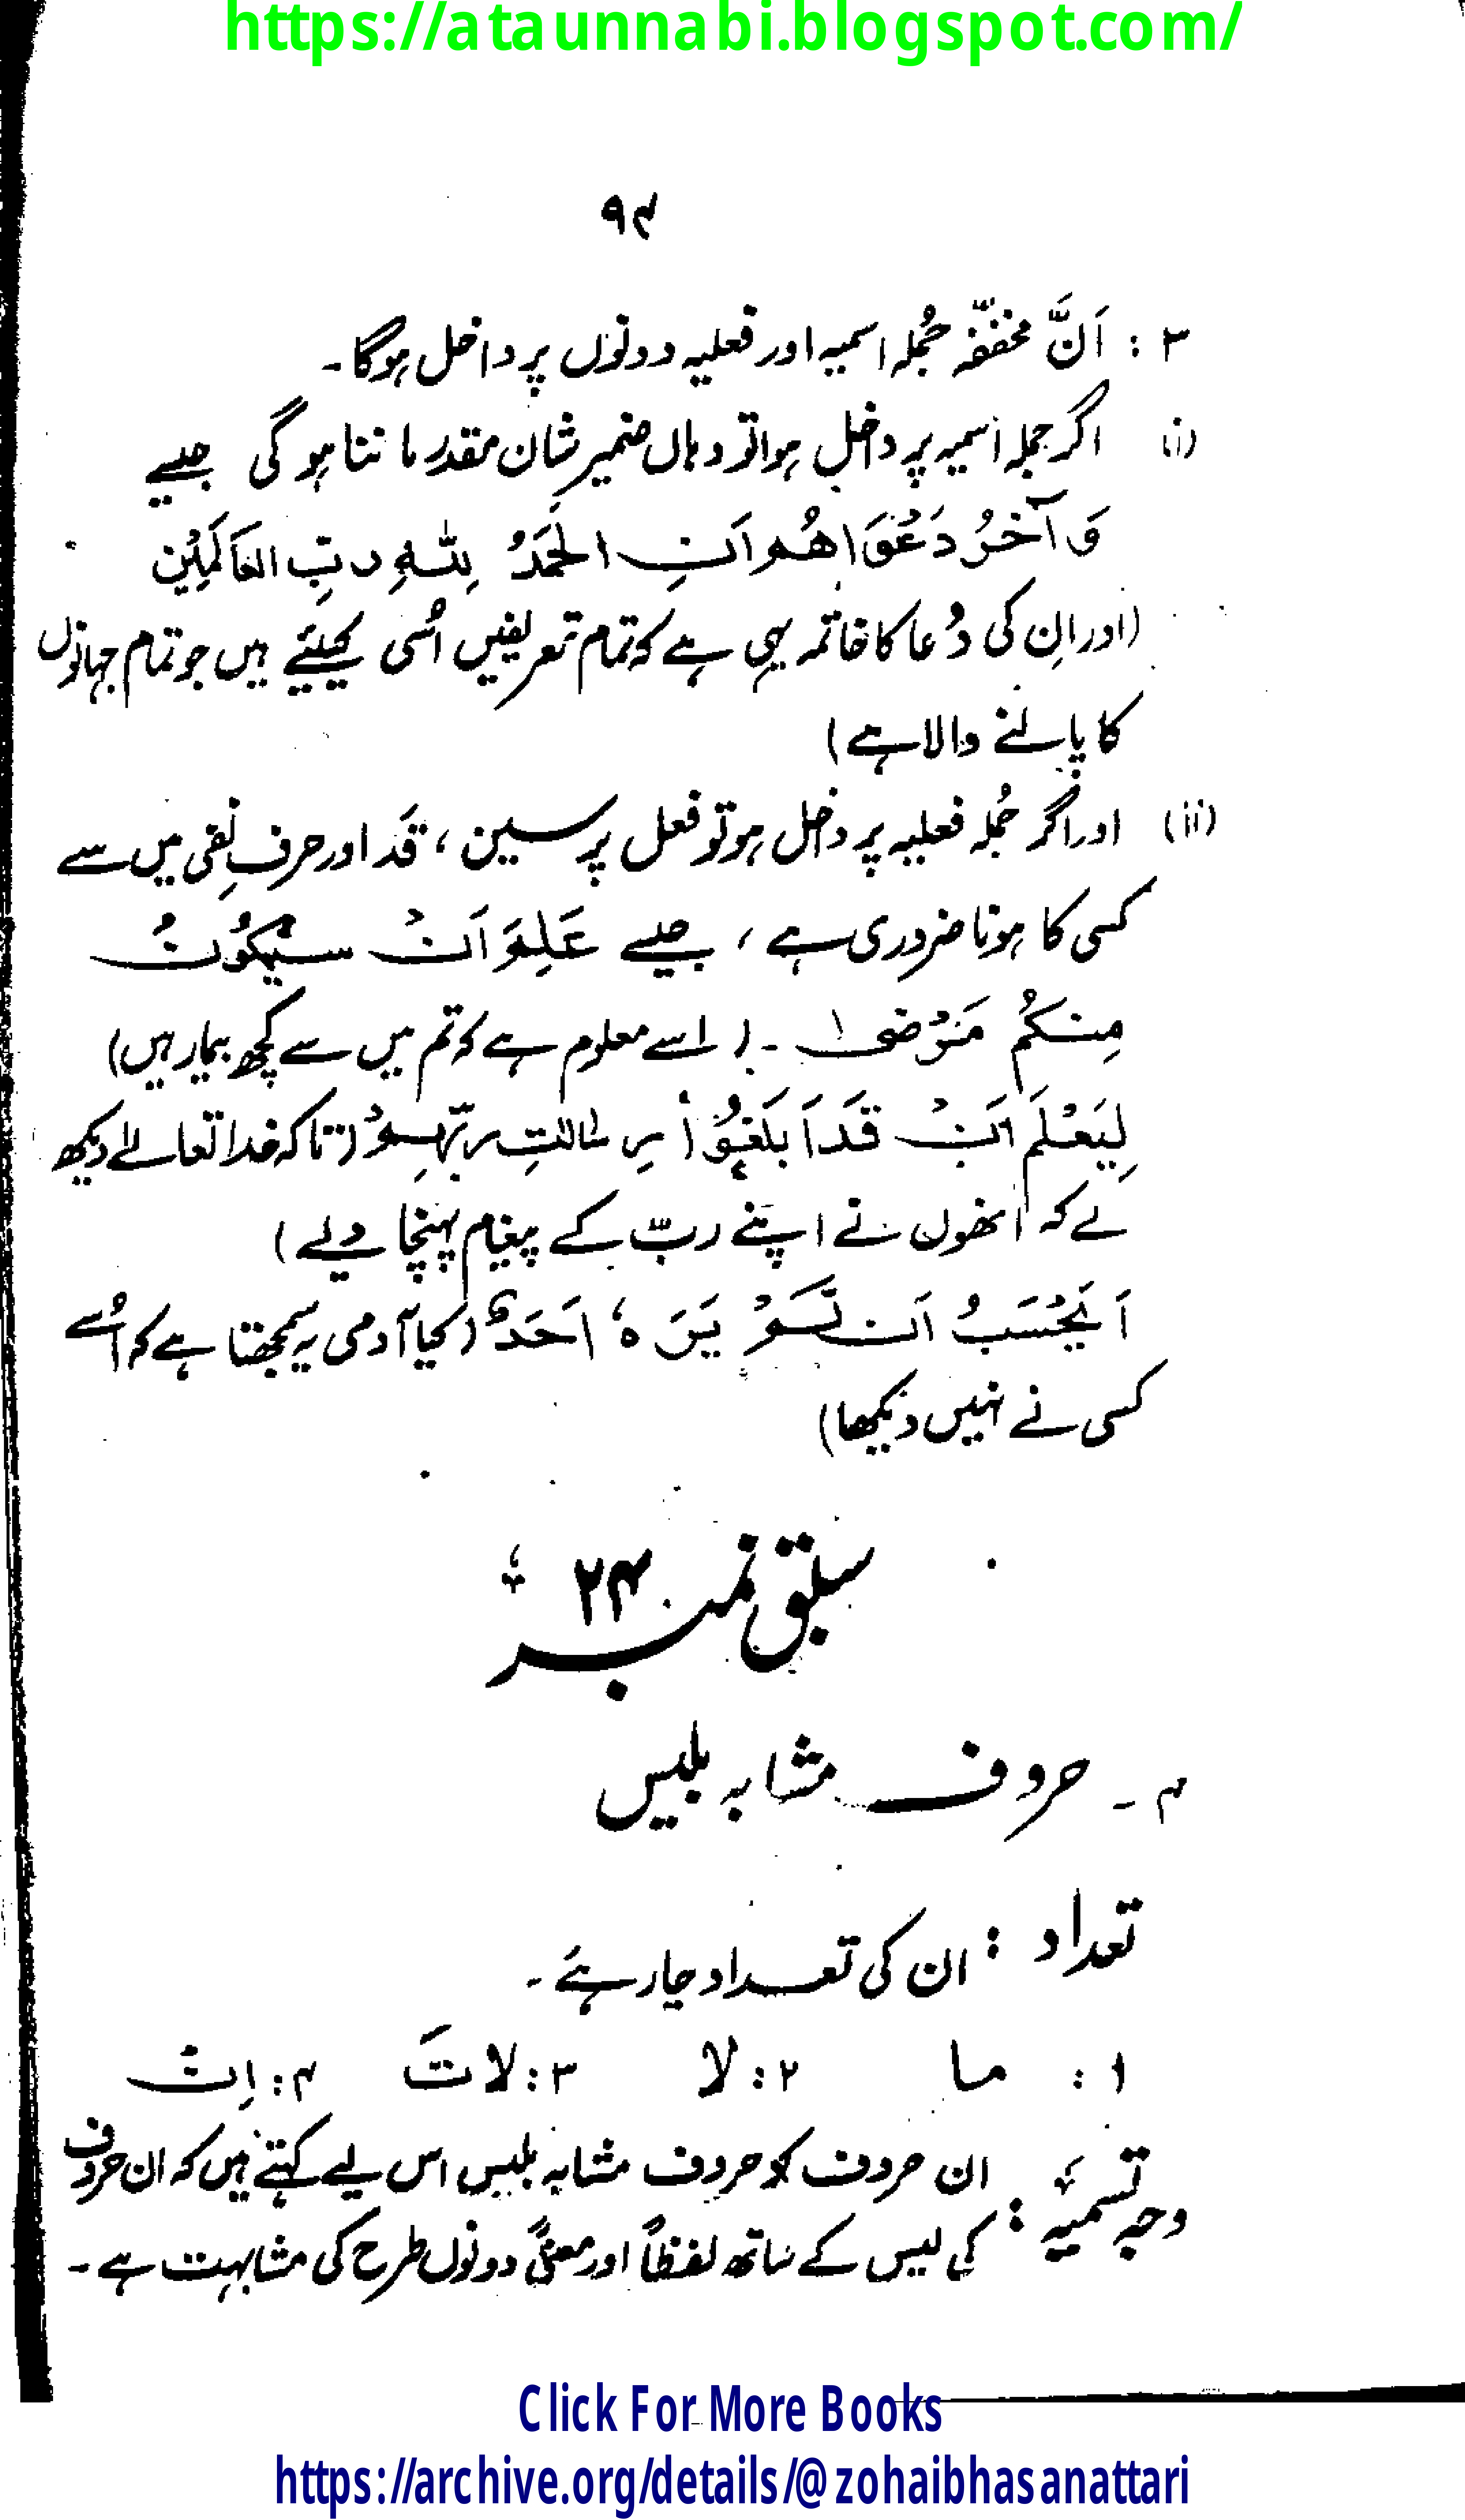 https://ataunnabi.blogspot.com/
۹۴
۳ : اَنَّ مخففّہ جُملہ اسمیہ اور فعلیہ دونوں پر داخل ہوگا۔
(i) اگر جملہ اسمیہ پر داخل ہوا تو وہاں ضمیر شان مقدر ماننا ہوگی جیسے
وَ آخرُ دَعْوَاهُم اَنِ الحَمْدُ لِلّٰہِ ربِّ العَالَمِیْن
(اور ان کی دُعا کا خاتمہ یہی ہے کہ تمام تعریفیں اُسی کیلئے ہیں جو تمام جہانوں
کا پالنے والا ہے)
(ii) اور اگر جُملہ فعلیہ پر داخل ہو تو فعل پر سین ، قَد اور حرفِ نفی میں سے
کسی کا ہونا ضروری ہے ، جیسے عَلِمَ اَنْ سیکُوْنُ
مِنکُم مَرْضٰی ۔ ( اسے معلوم ہے کہ تم میں سے کچھ بیمار ہیں)
لِیَعْلَمَ اَنْ قَدْ اَبلَغُوْا رِسَالٰتِ رَبِّہِمْ (تاکہ خدا تعالےٰ دیکھ
لے کہ انھوں نے اپنے ربّ کے پیغام پہنچا دیے )
اَیَحْسَبُ اَن لَّمْ یَرَ ہٗ اَحَدٌ (کیا آدمی یہ سمجھتا ہے کہ اُسے
کسی نے نہیں دیکھا)
سبق نمبر ۲۴
۴ ۔ حروف مشابہ بلیس
تعداد : ان کی تعداد چار ہے ۔
۱ : ما ۲ : لا ۳ : لاتَ ۴ : اِنْ
وجہ تسمیہ : ان حروف کو حروف مشابہ بلیس اس لیے کہتے ہیں کہ ان حروف
کی لیس کے ساتھ لفظاً اور معنیً دونوں طرح کی مشابہت ہے ۔
Click For More Books
https://archive.org/details/@zohaibhasanattari